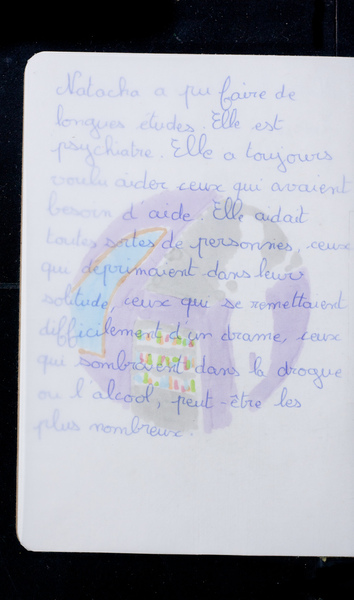 Natacha a pu faire de
longues études. Elle est
psychiatre. Elle a toujours
voulu aider ceux qui avaient
besoin d'aide. Elle aidait
toutes sortes de personnes, ceux
qui déprimaient dans leur
solitude, ceux qui se remettaient
difficilement d'un drame, ceux
qui sombraient dans la drogue
ou l'alcool, peut-être les
plus nombreux.